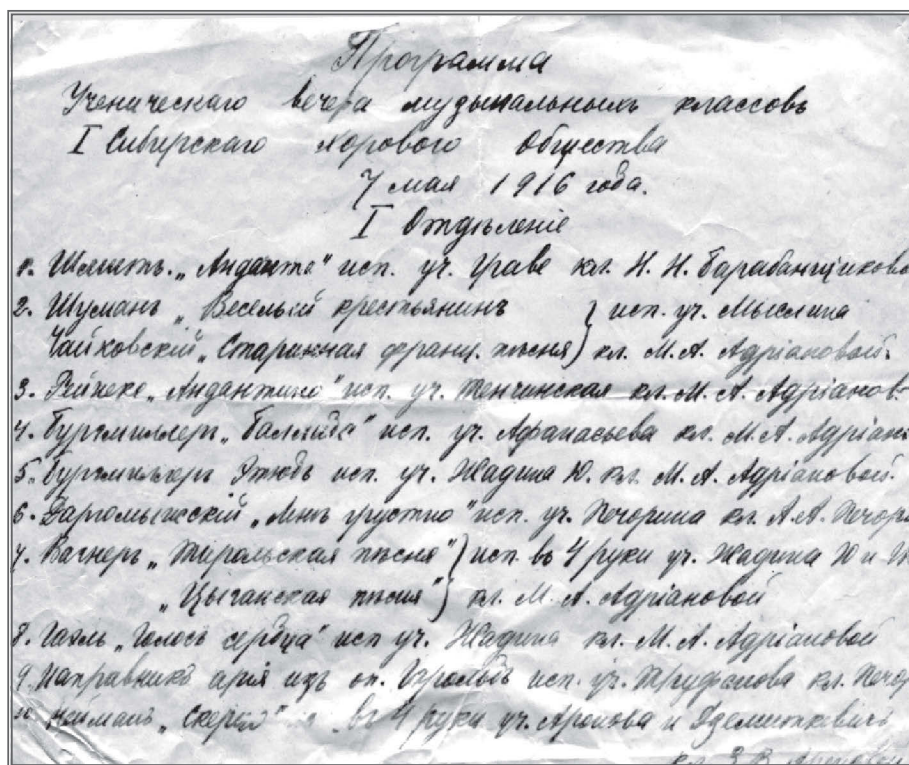 Программа
Ученическаго вечера музыкальныхъ классовъ
I Сибирскаго Хорового Общества
7 мая 1916 года.
I Отдѣленіе
1. Шмитъ. „Анданте" исп. уч. Граве кл. Н. Н. Барабанщикова
2. Шуманъ „Веселый крестьянинъ } исп. уч. Мыслина
Чайковскій „Старинная франц. пѣсня } кл. М. А. Адріановой.
3. Рейнеке „Андантино" исп. уч. кл. М. А. Адріанов
4. Бургмиллеръ „Баллада" исп. уч. Афанасьева кл. М. А. Адріан
5. Бургмиллеръ Этюдъ исп. уч. Жадина Ю. кл. М. А. Адріановой.
6. Даргомыжскій „Мнѣ грустно" исп. уч. Печорина кл. А. А. Печор
7. Вагнеръ „Тирольская пѣсня" } исп. въ 4 руки уч. Жадина Ю и
„Цыганская пѣсня" } кл. М. А. Адріановой
8. Гаэль „Голосъ сердца" исп уч. Жадина кл. М. А. Адріановой
9. Направникъ арія изъ оп. Гарольдъ исп. уч. Труфанова кл. Печор
10 Нейманъ „Скерцо" въ 4 руки уч. и
кл. З. В.